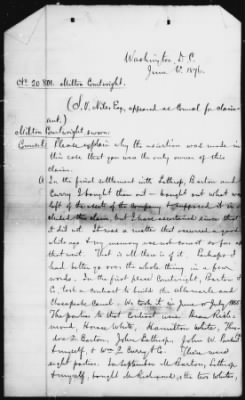 Washington, D.C.
June 6. 1876.
No. 20801. Milton Courtwright.
(S. V. Niles, Esq, appeared as Counsel for claim-
ant.)
Milton Courtwright sworn:
Counsel: Please explain why the assertion was made in
this case that you was the only owner of this
claim.
A. In the final settlement with Lathrop, Barton and
Curry I bought them out – bought out what was
left of the assets of the company. I supposed it in-
cluded this claim, but I have ascertained since that
it did not. It was a matter that occurred a good
while ago & my memory was not correct so far as
that went. That is all there is of it. Perhaps I
had better go over the whole thing in a few
words. In the first place Courtwright, Barton &
Co. took a contract to build the Albemarle and
Chesapeake Canal. We took it in June or July 1855.
The parties to that contract were Dean Rich-
mond, Horace White, Hamilton White, Tho-
dore Barton, John Lathrop, John W.
& myself, & Wm. L. Curry, & Co. There were
eight parties. In September Mr. Barton, Lathrop
& myself, bought Mr. Richmond, the two Whites,